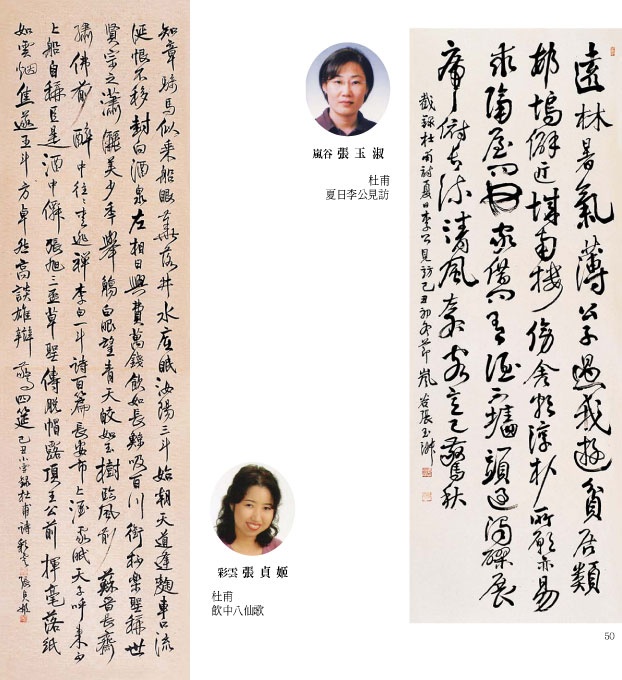 遠林暑氣薄公子過我遊貧居類
邨塢僻近城南樓傍舍頗淳朴所願亦易
求隔屋問西家借問有酒不墻頭過濁醪展
席俯長流清風左右至客意已驚秋
截錄杜甫詩夏日李公見訪己丑初冬節嵐谷張玉淑
嵐谷 張玉淑
杜甫
夏日李公見訪
知章騎馬似乘船眼花落井水底眠汝陽三斗始朝天道逢麴車口流
涎恨不移封向酒泉左相日興費萬錢飲如長鯨吸百川銜杯樂聖稱世
賢宗之瀟灑美少年擧觴白眼望青天皎如玉樹臨風前蘇晉長齋
繡佛前醉中往往愛逃禪李白一斗詩百篇長安市上酒家眠天子呼來不
上船自稱臣是酒中僊張旭三盃草聖傳脫帽露頂王公前揮毫落紙
如雲烟焦遂五斗方卓然高談雄辯驚四筵己丑小雪錄杜甫詩彩雲張貞姬
彩雲 張貞姬
杜甫
飮中八仙歌
50